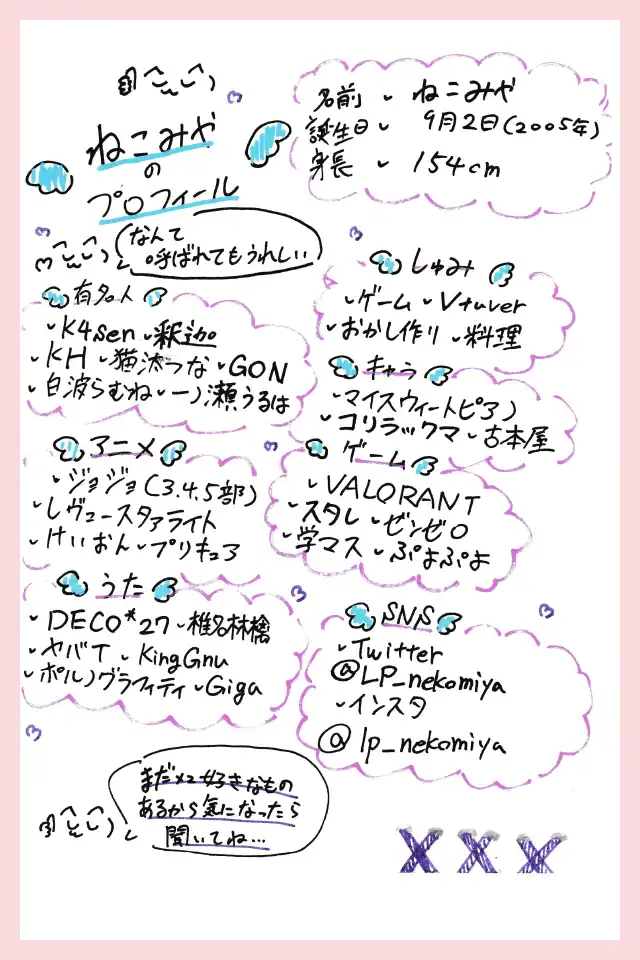 ねこみや
の
プロフィール
名前 ねこみや
誕生日 9月2日(2005年)
身長 154cm
なんて
呼ばれてもうれしい
有名人
K4sen 釈迦
KH 猫汰つな GON
白波らむね 一ノ瀬うるは
しゅみ
ゲーム Vtuver
おかし作り 料理
キャラ
マイスウィートピアノ
コリラックマ 古本屋
アニメ
ジョジョ(3.4.5部)
レヴュースタァライト
けいおん プリキュア
ゲーム
VALORANT
スタレ ゼンゼロ
学マス ぷよぷよ
うた
DECO*27 椎名林檎
ヤバT KingGnu
ポルノグラフィティ Giga
SNS
Twitter
@LP_nekomiya
インスタ
@lp_nekomiya
まだメロ好きなもの
あるから気になったら
聞いてね…
XXX